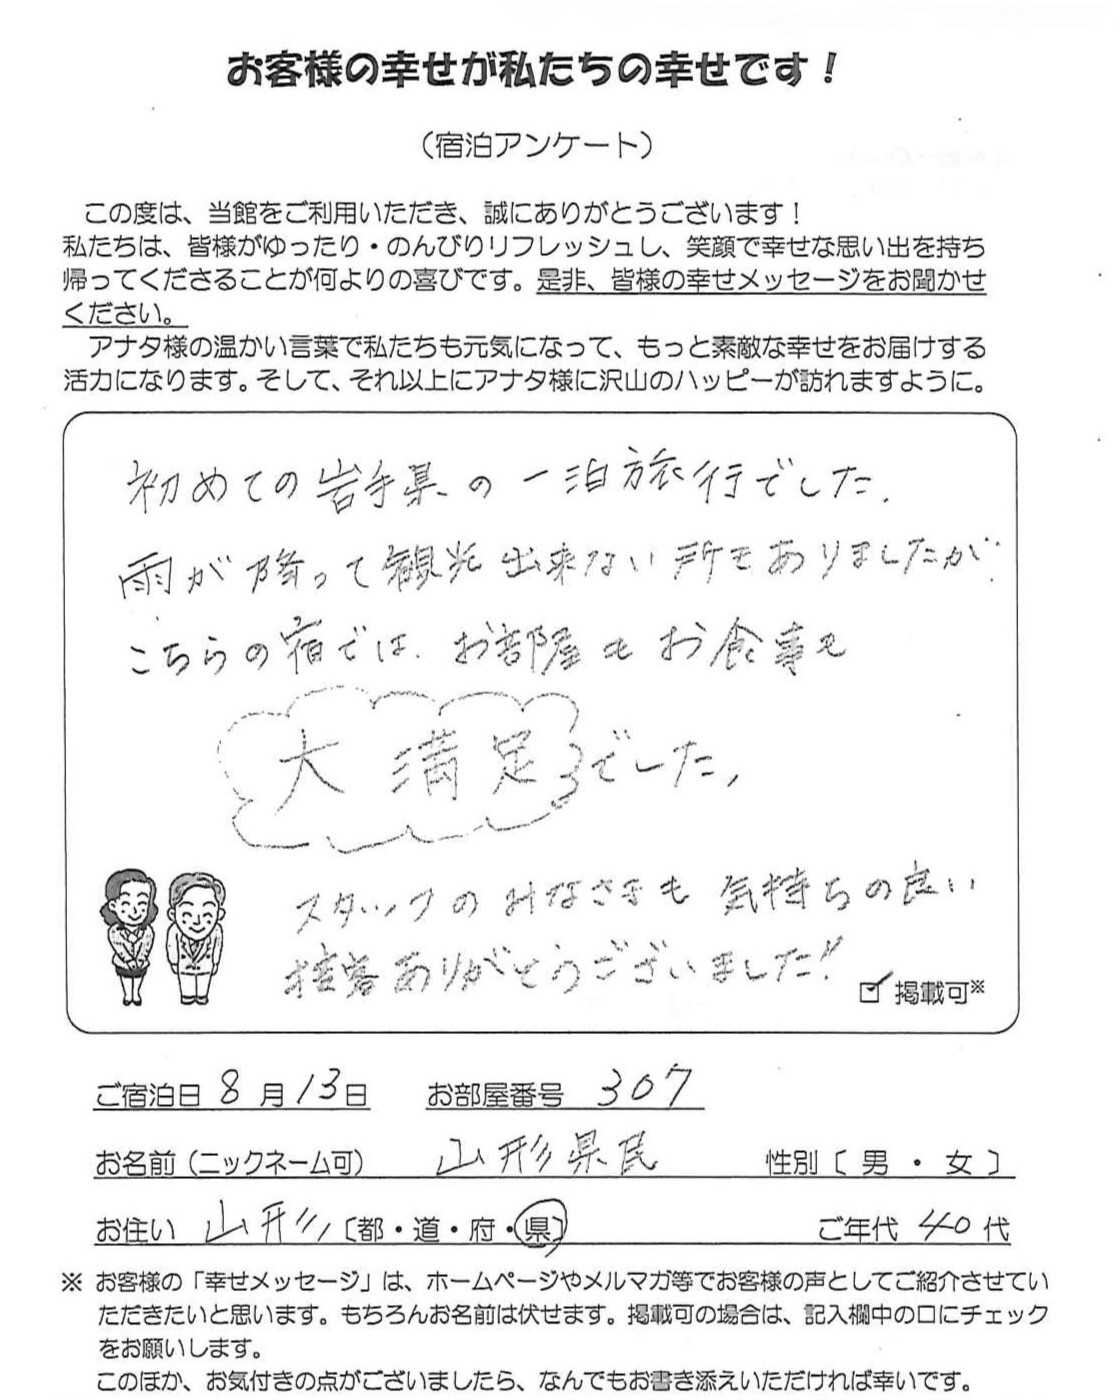 お客様の幸せが私たちの幸せです！
（宿泊アンケート）
この度は、当館をご利用いただき、誠にありがとうございます！
私たちは、皆様がゆったり・のんびりリフレッシュし、笑顔で幸せな思い出を持ち
帰ってくださることが何よりの喜びです。是非、皆様の幸せメッセージをお聞かせ
ください。
アナタ様の温かい言葉で私たちも元気になって、もっと素敵な幸せをお届けする
活力になります。そして、それ以上にアナタ様に沢山のハッピーが訪れますように。
初めての岩手県の一泊旅行でした。
雨が降って観光出来ない所もありましたが
こちらの宿では、お部屋もお食事も
大満足でした。
スタッフのみなさまも気持ちの良い
接客ありがとうございました!!
☑ 掲載可※
ご宿泊日 8月13日 お部屋番号 307
お名前（ニックネーム可） 山形県民 性別〔 男 ・ 女 〕
お住い 山形〔都・道・府・県〕 ご年代 40代
※ お客様の「幸せメッセージ」は、ホームページやメルマガ等でお客様の声としてご紹介させてい
ただきたいと思います。もちろんお名前は伏せます。掲載可の場合は、記入欄中の口にチェック
をお願いします。
このほか、お気付きの点がございましたら、なんでもお書き添えいただければ幸いです。